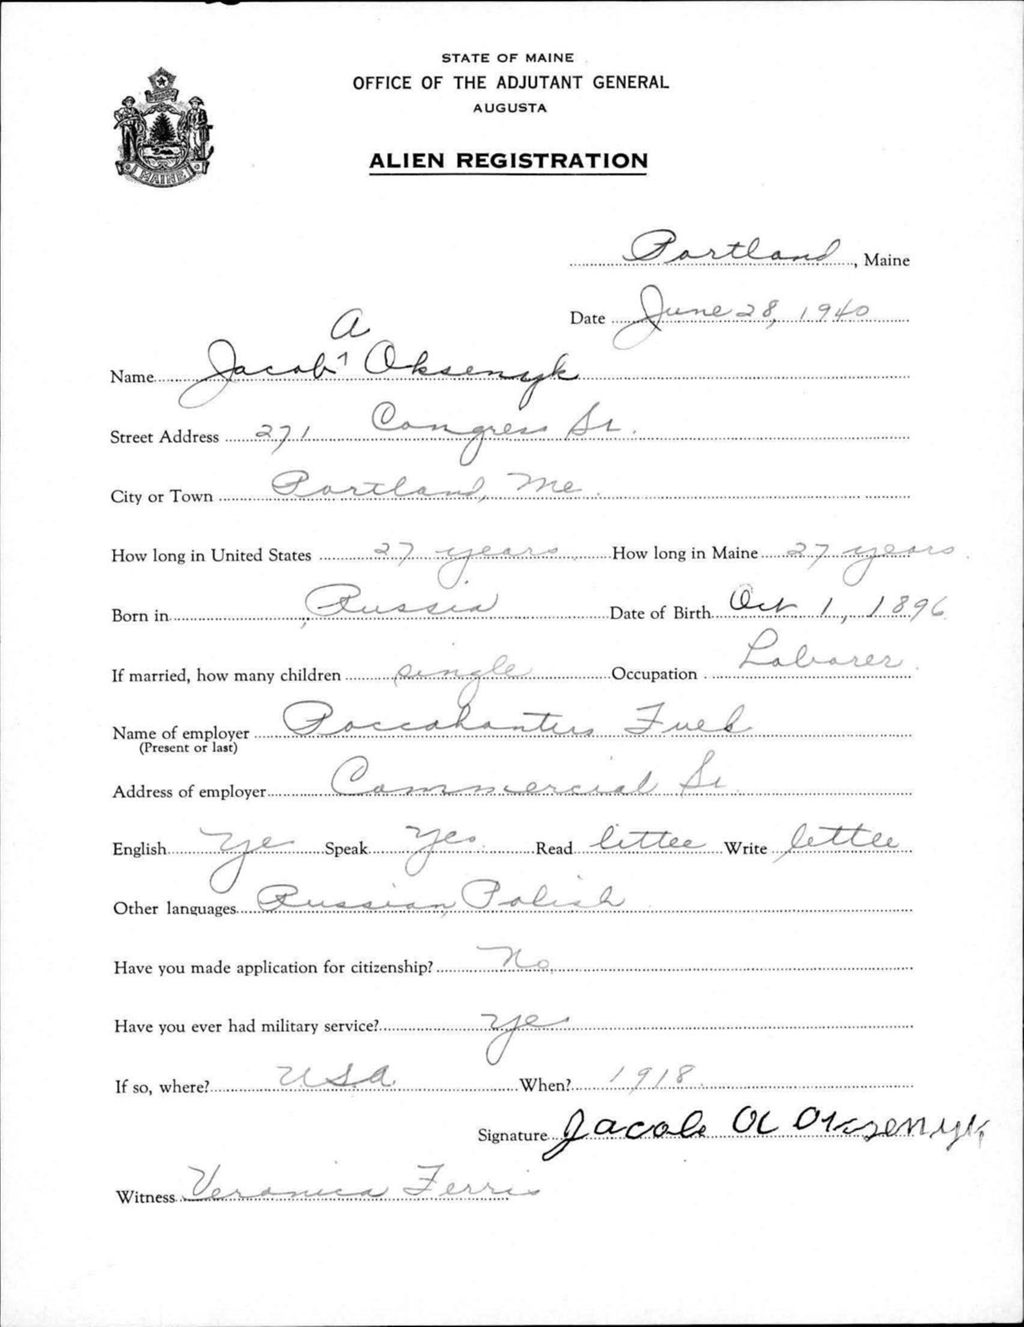 STATE OF MAINE
OFFICE OF THE ADJUTANT GENERAL
AUGUSTA
ALIEN REGISTRATION
MAINE
Portland, Maine
Date June 28, 1940
A
Name Jacob ^ Oksenyk
Street Address 271 Congress St.
City or Town Portland, Me.
How long in United States 27 years How long in Maine 27 years
Born in Russia Date of Birth Oct 1, 1896
If married, how many children single Occupation Laborer
Name of employer Poccahantus Fuel
(Present or last)
Address of employer Commercial St.
English Yes Speak Yes Read littee Write littee
Other languages Russian, Polish
Have you made application for citizenship? No.
Have you ever had military service? Yes
If so, where? USA. When? 1918
Signature Jacob A Oksenyk
Witness Veronica Ferris